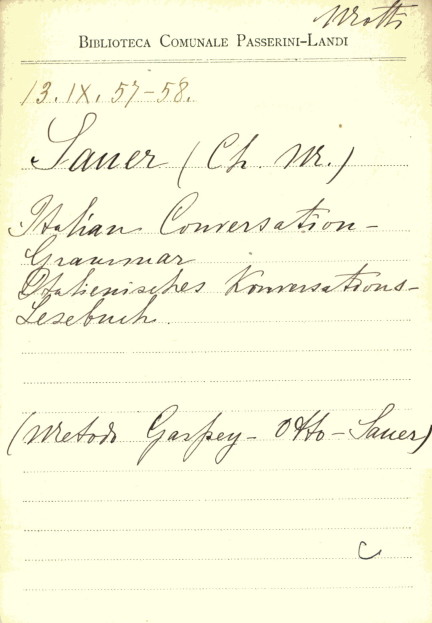 BIBLIOTECA COMUNALE PASSERINI-LANDI
13. IX. 57-58.
Sauer (Ch. M.)
Italian Conversation-
Grammar
Italienisches Konversations-
Lesebuch.
(Metodo Gaspey-Otto-Sauer)
C